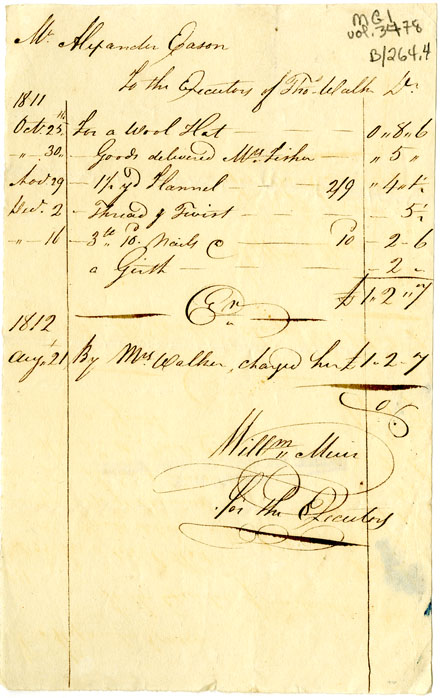 MG 1
vol. 3478
B/264.4
Mr. Alexander Eason
To the Executors of Thos. Walker Dr.
1811
Octr. 25th For a Wool Hat 0 " 8 " 6
" 30 Goods delivered Mrs. Fisher " 5 "
Novr. 29 1½ yd Flannel 2/9 " 4 " 1½
Decr. 2 Thread & Twist 5½
" 16 3 lb 10d. Nails @ 10 2 - 6
a Girth 2 "
£ 1 " 2 " 7
Cr.
1812
Augt. 21 By Mrs. Walker, charged her £ 1 - 2 - 7
Willm. Muir
for the Executors